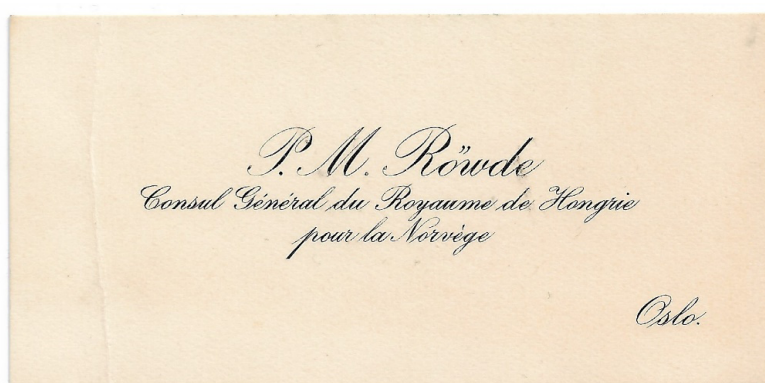 P. M. Röwde
Consul Général du Royaume de Hongrie
pour la Norvège
Oslo.